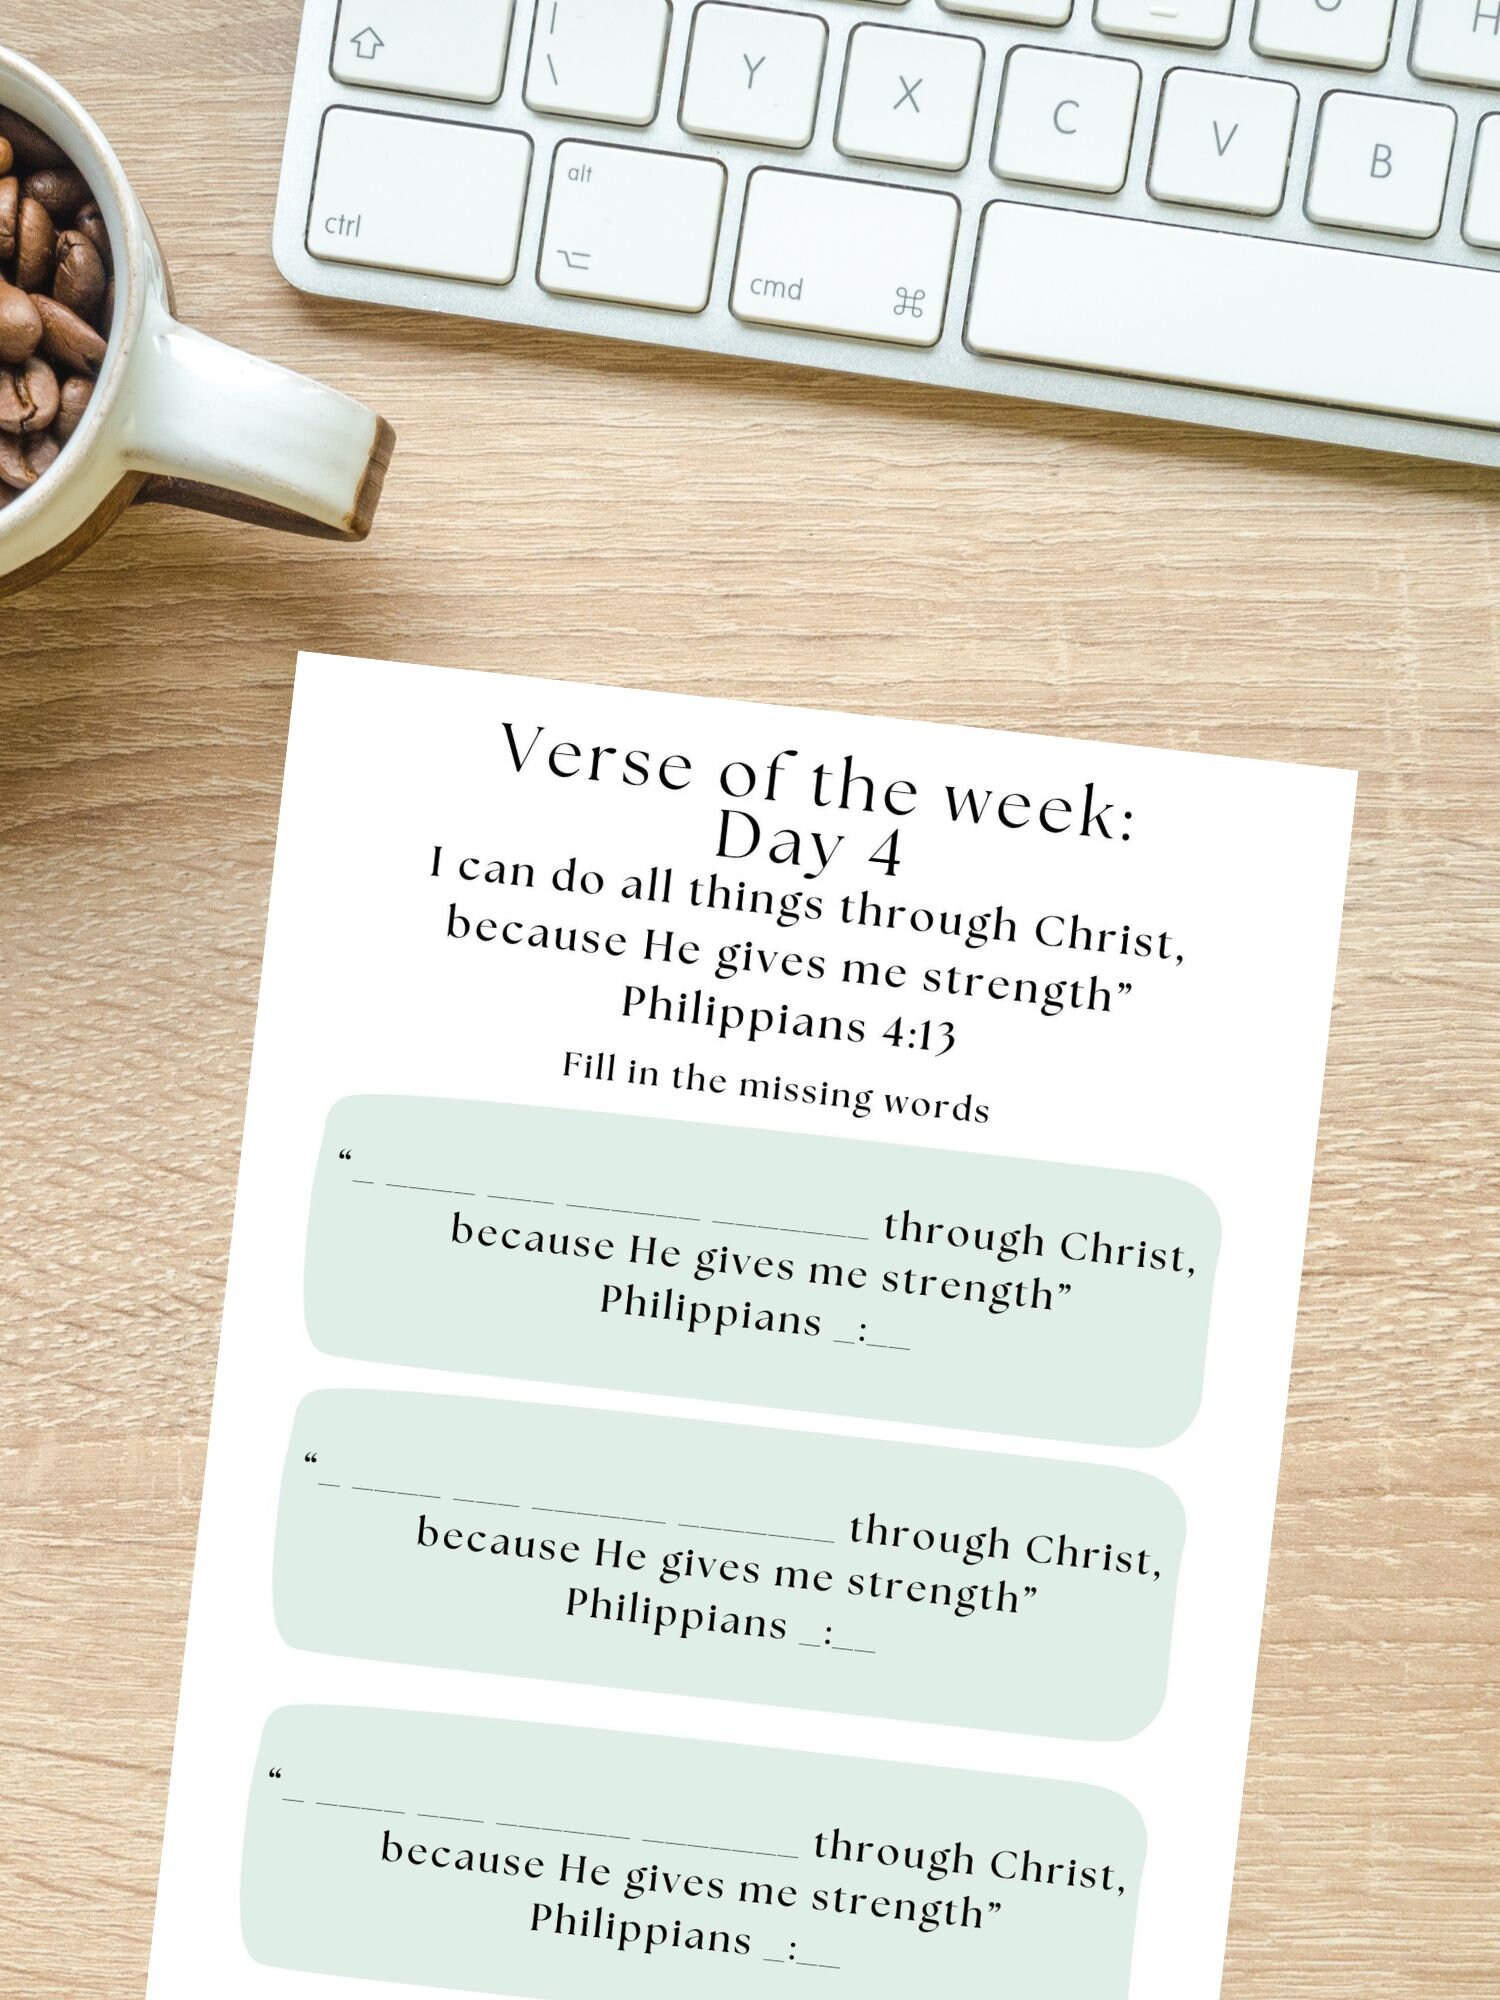 | \
Y X C V B
alt
ctrl
cmd ⌘
Verse of the week:
Day 4
I can do all things through Christ,
because He gives me strength”
Philippians 4:13
Fill in the missing words
“_ ____ ___ ______ _______ through Christ,
because He gives me strength”
Philippians _:__
“_ ____ ___ ______ _______ through Christ,
because He gives me strength”
Philippians _:__
“_ ____ ___ ______ _______ through Christ,
because He gives me strength”
Philippians _:__